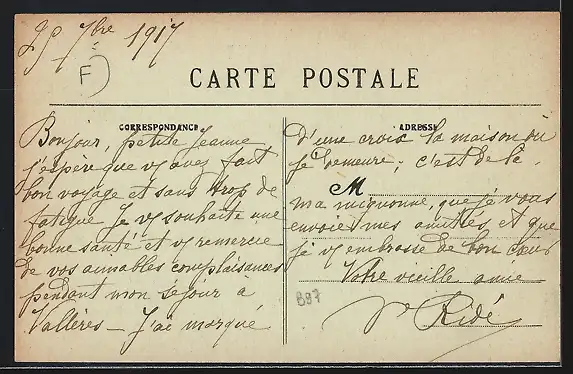 29 7bre 1917
F)
CARTE POSTALE
CORRESPONDANCE
ADRESSE
Bonjour, petite Jeanne
j'espère que vs avez fait
bon voyage et sans trop de
fatigue je vs souhaite une
bonne santé et vs remercie
de vos aimables complaisances
pendant mon séjour a
Vallères – J'ai marqué
d'une croix la maison où
je demeure ; c'est de là,
M
ma mignonne, que je vous
envoie mes amitiés et que
je vs embrasse de bon cœur
Votre vieille amie
Ve Ridé
887